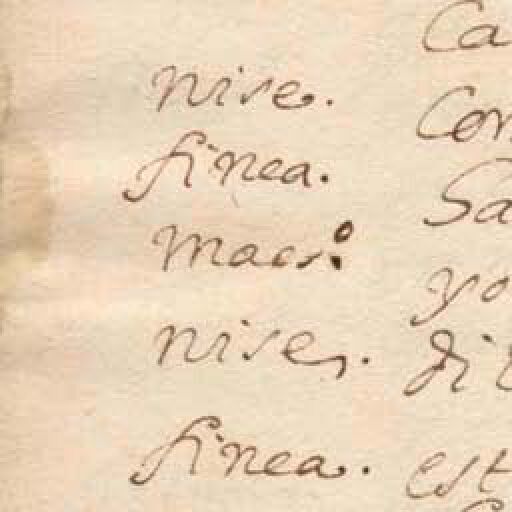 Ca
nise. Con
finea. Sa
maes.º yo
nise. di
finea. est